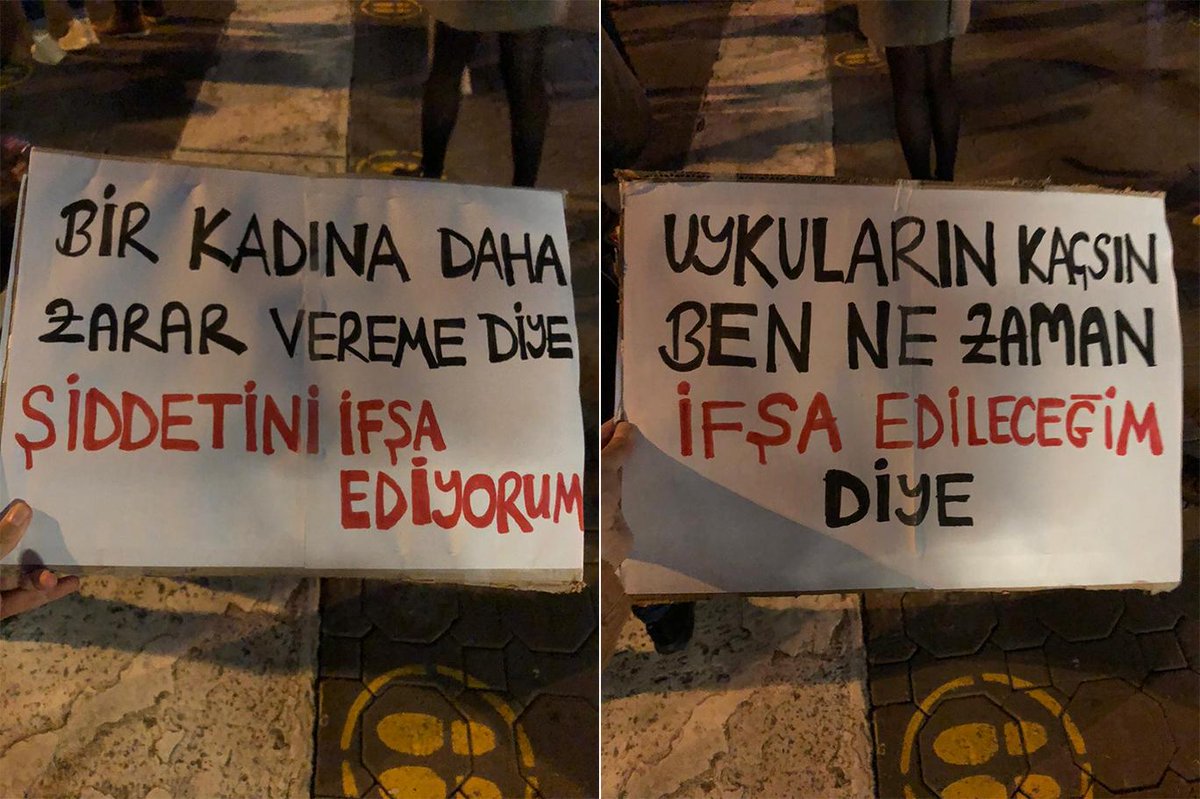 BİR KADINA DAHA
ZARAR VEREME DİYE
ŞİDDETİNİ İFŞA
EDİYORUM
UYKULARIN KAÇSIN
BEN NE ZAMAN
İFŞA EDİLECEĞİM
DİYE